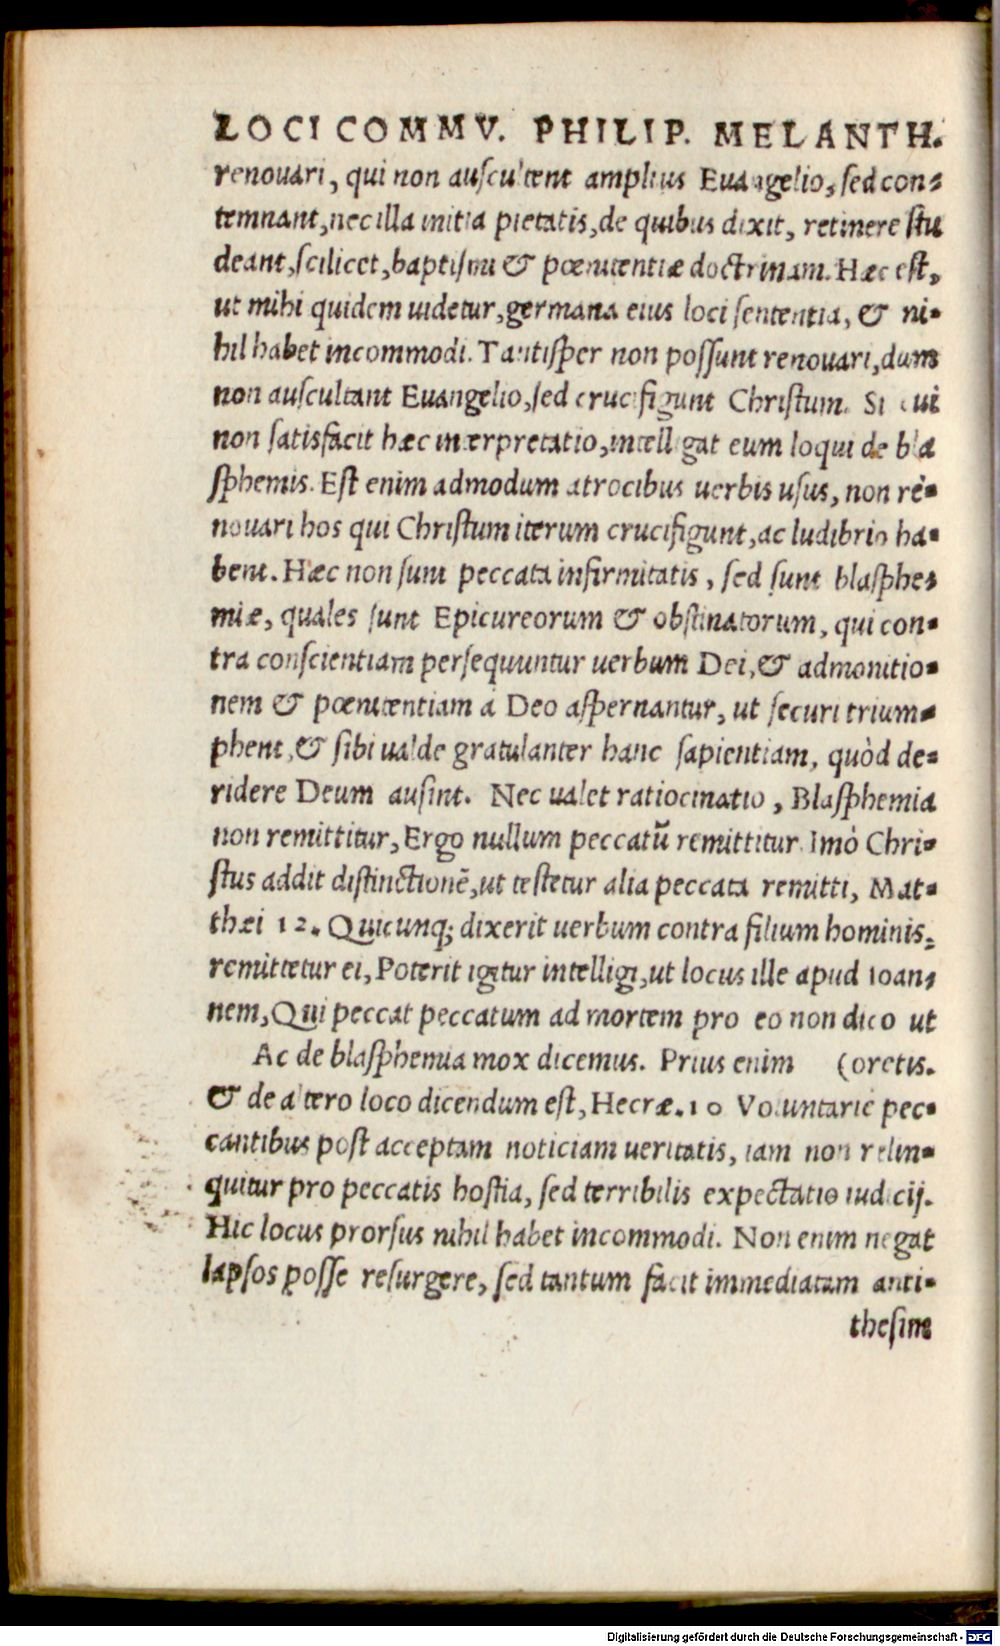 LOCI COMMV. PHILIP. MELANTH.
renouari, qui non auscultent amplius Euangelio, sed con-
temnant, nec illa initia pietatis, de quibus dixit, retinere stu
deant, scilicet, baptismi & pœnitentiæ doctrinam. Hæc est,
ut mihi quidem uidetur, germana eius loci sententia, & ni-
hil habet incommodi. Tantisper non possunt renouari, dum
non auscultant Euangelio, sed crucifigunt Christum. Si cui
non satisfacit hæc interpretatio, intelligat eum loqui de bla
sphemis. Est enim admodum atrocibus uerbis usus, non re-
nouari hos qui Christum iterum crucifigunt, ac ludibrio ha-
bent. Hæc non sunt peccata infirmitatis, sed sunt blasphe-
miæ, quales sunt Epicureorum & obstinatorum, qui con-
tra conscientiam persequuntur uerbum Dei, & admonitio-
nem & pœnitentiam à Deo aspernantur, ut securi trium-
phent, & sibi ualde gratulanter hanc sapientiam, quòd de-
ridere Deum ausint. Nec ualet ratiocinatio, Blasphemia
non remittitur, Ergo nullum peccatũ remittitur. Imò Chri-
stus addit distinctionẽ, ut testetur alia peccata remitti, Mat-
thæi 12. Quicunq; dixerit uerbum contra filium hominis,
remittetur ei, Poterit igitur intelligi, ut locus ille apud Ioan-
nem, Qui peccat peccatum ad mortem pro eo non dico ut
Ac de blasphemia mox dicemus. Prius enim (oretis.
& de altero loco dicendum est, Hecræ. 10 Voluntarie pec-
cantibus post acceptam noticiam ueritatis, iam non relin-
quitur pro peccatis hostia, sed terribilis expectatio iudicij.
Hic locus prorsus nihil habet incommodi. Non enim negat
lapsos posse resurgere, sed tantum facit immediatam anti-
thesim
Digitalisierung gefördert durch die Deutsche Forschungsgemeinschaft - DFG